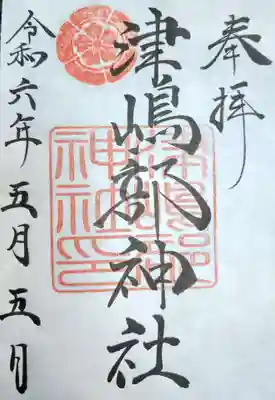 奉拝
津嶋部神社
津嶋部神社印
令和六年五月五日